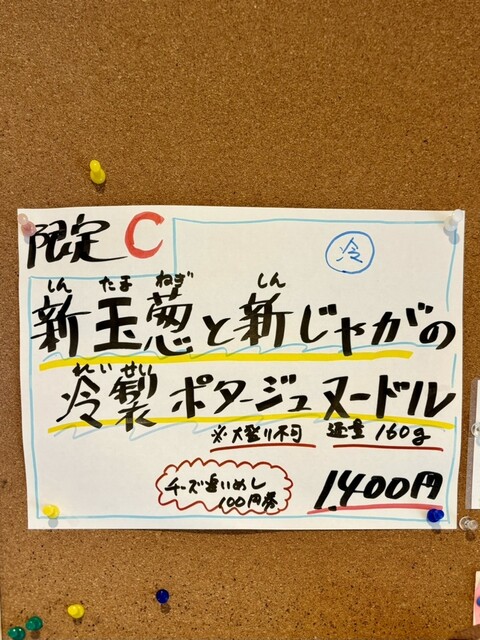 限定 C
冷
しん たま ねぎ しん
新玉葱と新じゃがの
れい せい
冷製 ポタージュ ヌードル
※大盛り不可 麺量 160g
チーズ追いめし
100円券
1400円